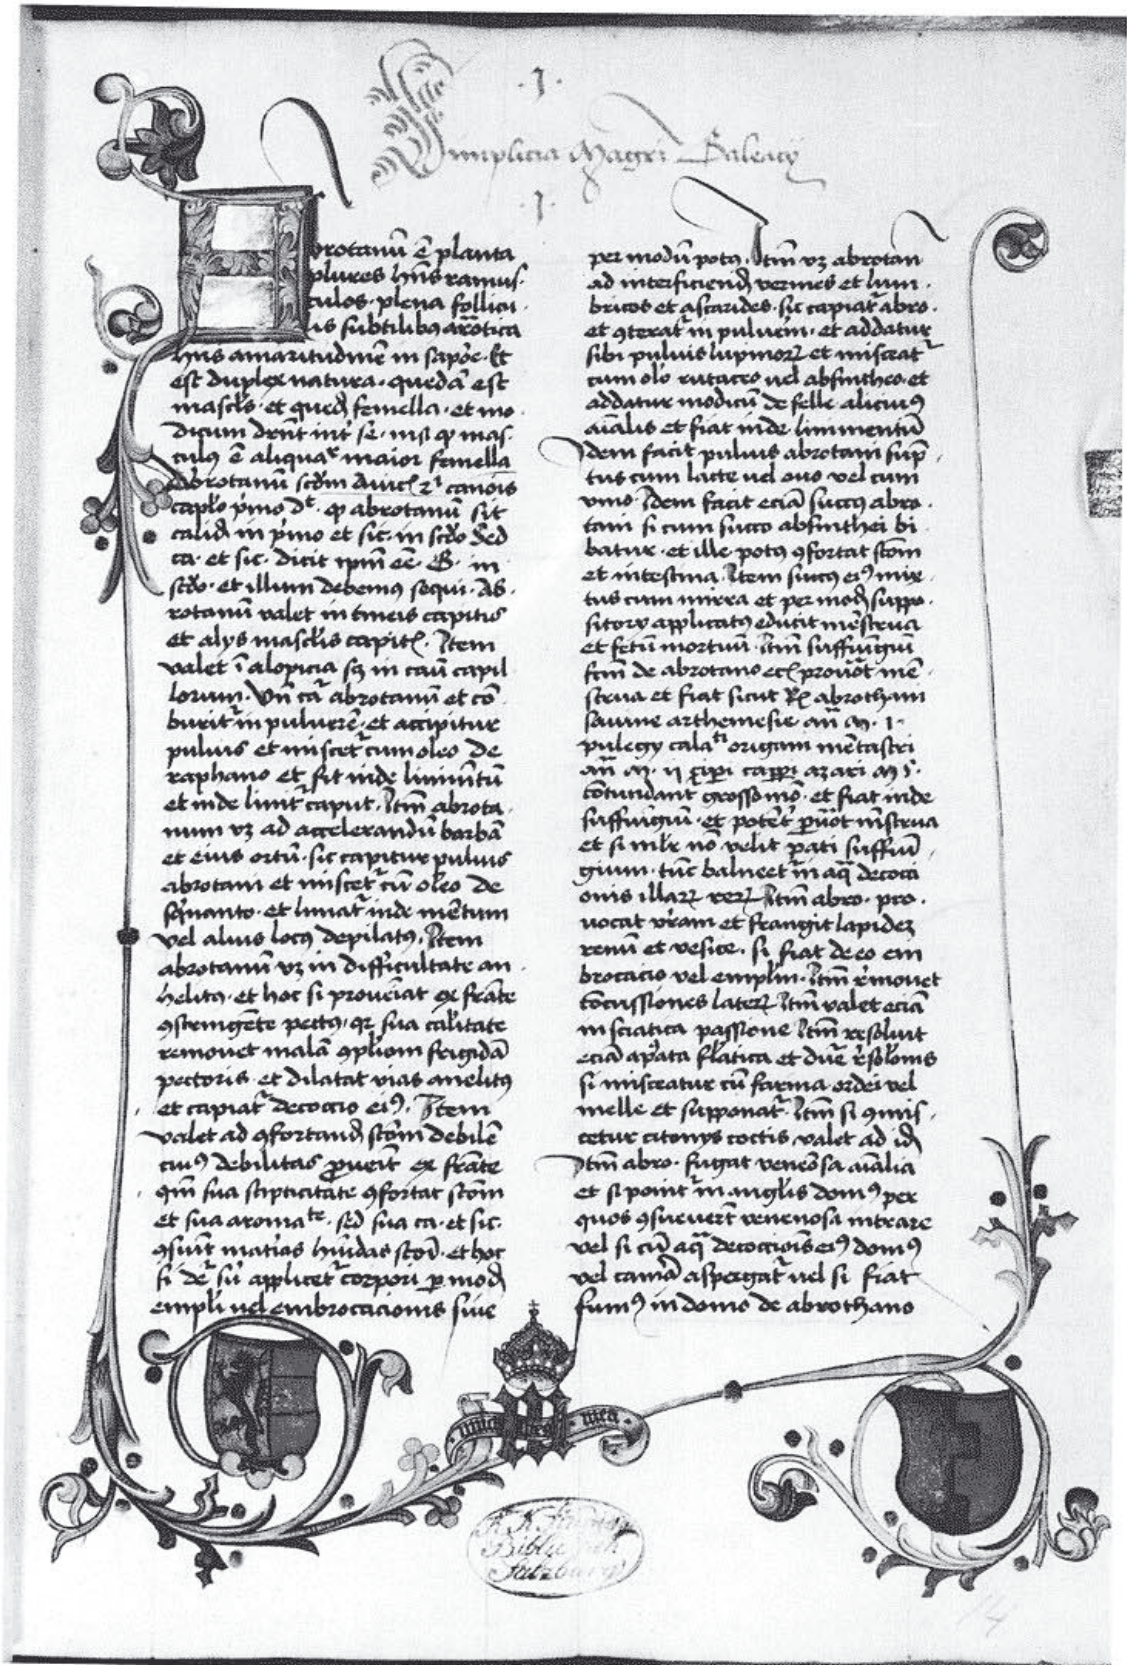 .I.
Simplicia Magri Galeacij
.I.
Abrotanū ē planta
plures hñs ramus-
culos. plena follicu-
lis subtilibꝰ arōtica
hñs amaritudinē in sapōe. Et
est duplex natura. quedā est
mascl's. et queđ femella. et mo-
dicum drñt int' se. nisi ꝙ mas-
culꝰ ē aliquar maior femella
Abrotanū scđm Auic. 2i canōis
caplo p'mo dt. ꝙ abrotanū sit
caliđ in p'mo et sic. in scđo Sed
ca. et sic. dicit ipm eē. G. in
scđo. et illum debemꝰ sequi. Ab-
rotanū valet in tineis capitis
et alijs mascl'is capitꝭ. Item
valet ī alopicia sꝫ in cāu capil
lorum. Vñ ca abrotanū et cō-
burit' in puluerē. et accipitur
puluis et miscet' cum oleo de
raphano et fit inde linimētū
et inde linit' caput. Itm̄ abrota-
num vꝫ ad accelerandū barbā
et eius ortū. sic capitur puluis
abrotani et miscet' cū oleo de
sq'nanto. et liniat' inde mētum
vel alius locꝰ depilatꝰ. Item
abrotanū vꝫ in difficultate an-
helitꝰ. et hoc si proueīat ex fr̄ate
ꝯstringēte pectꝰ. qꝛ sua cal'itate
remouet malā ꝯpl'iom frigidā
pectoris. et dilatat vias anelitꝰ
et capiat' decoccio eiꝰ. Item
valet ad ꝯfortanđ stōm debilē
ciuꝰ debilitas proueīt ex fr̄ate
qm̄ sua stipticitate ꝯfortat stōm
et sua aromate. sed sua ca. et sic.
ꝯsumit mat'ias hūidas stōi. et hoc
si de sū applicet' corpori ꝑ mođ
empl'i vel embrocacionis siue
per modū potꝰ. Itm̄ vꝫ abrotan
ad interficienđ vermes et lum-
bricos et ascarides. sic capiat' abro.
et ꝯterat' in puluerm. et addatur
sibi puluis lupinorꝝ et misceat'
cum olo rutaceo vel absintheo. et
addatur modicū de felle alicuiꝰ
aīalis et fiat inde linimentū
Idem facit puluis abrotani sup̄-
tus cum lacte vel ouo vel cum
vino. Idem facit eciā succꝰ abro-
tani si cum succo absinthei bi-
batur. et ille potꝰ ꝯfortat stōm
et intestina. Item succꝰ eiꝰ mix-
tus cum mirra et per mođ suppo-
sitorij applicatꝰ educit mēstrua
et fetū mortuū. Itm̄ suffūigiū
fcm̄ de abrotano ec̄ prouōt mē-
strua et fiat sicut Rͨ abrothani
sauine arthemesie añ m̄. i.
pulegij calati origani mētastri
añ m̄. ij cip̄i cappi azari m̄ s.
cōtundant' grosso mō. et fiat inde
suffūigiū. et potēt' ꝑuōt mēstrua
et si ml'r nō velit pati suffūi-
gium. tūc balneet' in aq̄ decocci
onis illarꝝ rerꝝ Itm̄ abro. pro-
uocat vr̄am et frangit lapideꝫ
renū et vesice. si fiat de eo em
brocacio vel empl'm. Itm̄ r'mouet
cōcussiones laterꝝ. Itm̄ valet eciā
in sciatica passione Itm̄ resoluit
eciā apāta fl'atica et due r'solōnis
si misceatur cū farina ordei vel
melle et supponat'. Itm̄ si ꝯmis-
cetur citonijs coctis valet ad iđ
Itm̄ abro. fugat venēosa aīalia
et si ponit' in angl'is domꝰ per
quos ꝯsueuerūt venenosa intrare
vel si cū aq̄ decocciōis eiꝰ domꝰ
vel camā aspergat' vel si fiat
fumꝰ in domo de abrothano
mea
K. K. Studien
Bibliothek
Salzburg